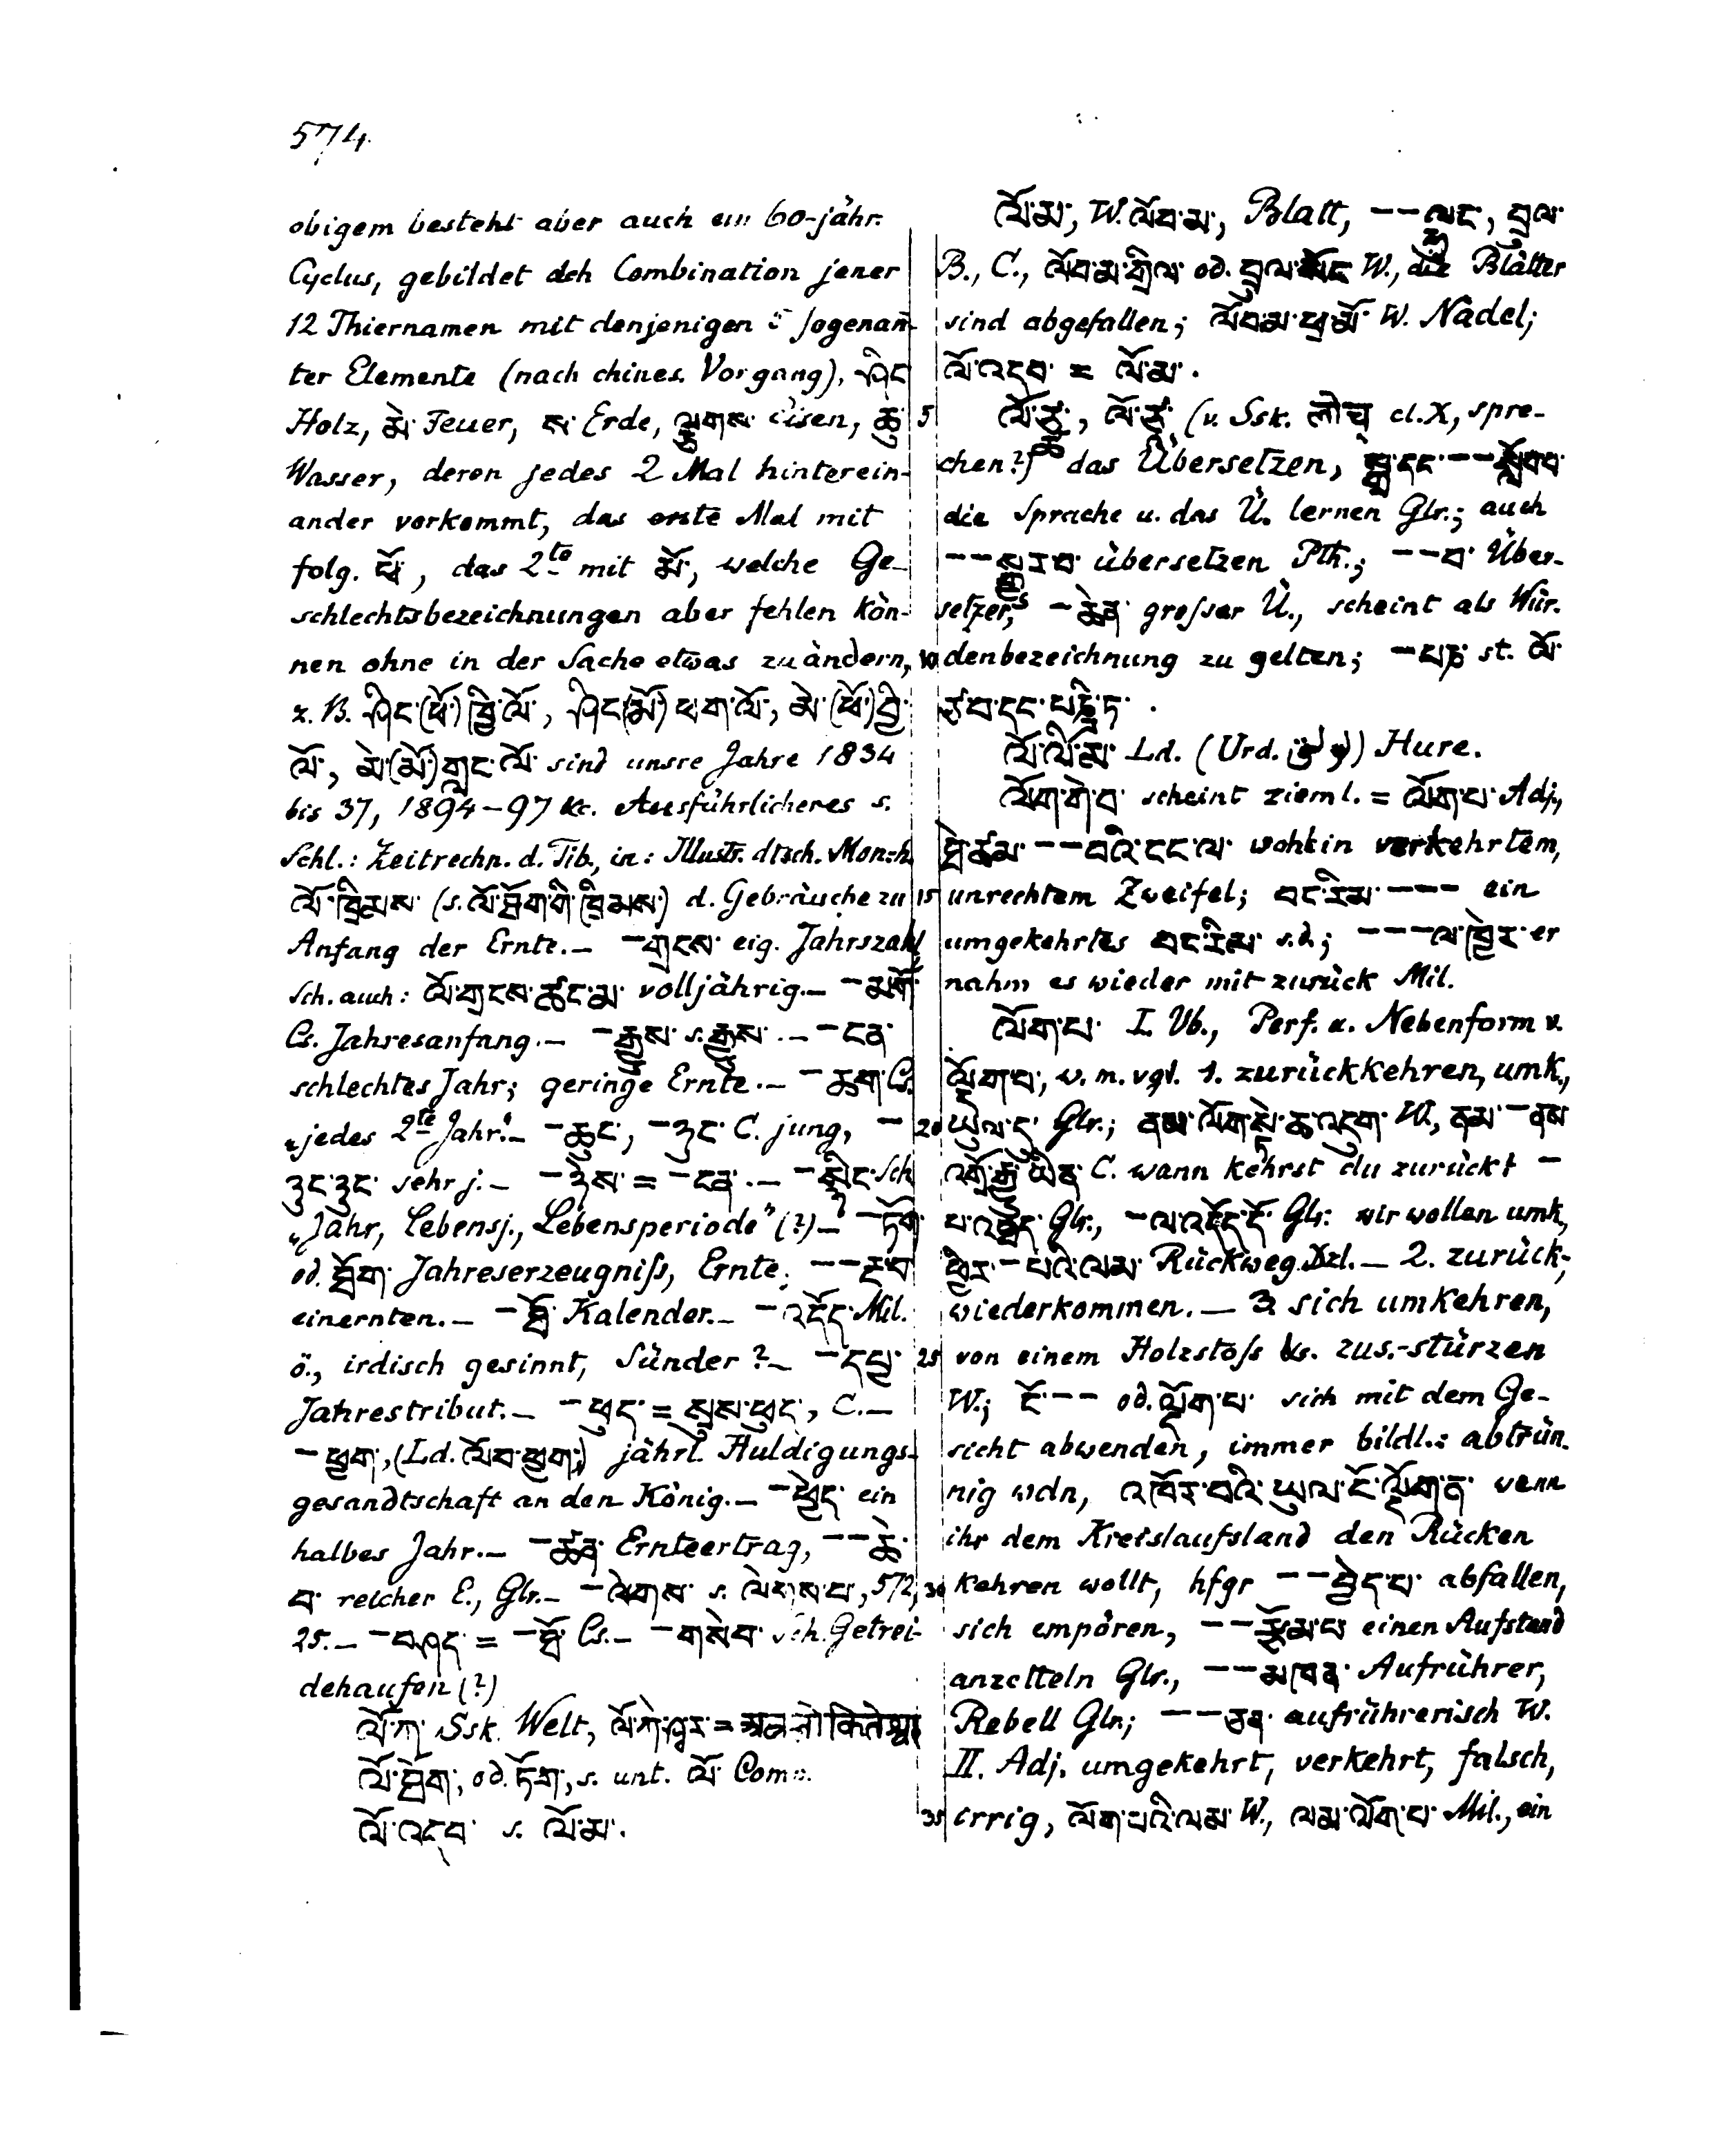 574.
obigem besteht aber auch ein 60-jähr.
Cyclus, gebildet dch Combination jener
12 Thiernamen mit denjenigen 5 sogenan̄-
ter Elemente (nach chines. Vorgang), ཤིང
Holz, མེ་ Feuer, ས་ Erde, ལྕགས་ Eisen, ཆུ་
Wasser, deren jedes 2 Mal hinterein-
ander vorkommt, das erste Mal mit
folg. ཕོ་, das 2te mit མོ་, welche Ge-
schlechtsbezeichnungen aber fehlen kön-
nen ohne in der Sache etwas zu ändern,
z. B. ཤིང་(ཕོ་)ཁྱི་ལོ་, ཤིང(མོ་)ཕག་ལོ་, མེ་(ཕོ་)བྱི་
ལོ་, མེ་(མོ་)གླང་ལོ་ sind unsre Jahre 1834
bis 37, 1894-97 &c. Ausführlicheres s.
Schl.: Zeitrechn. d. Tib., in: Illustr. dtsch. Monsh.
ལོ་ཁྲིམས་ (s. ལོ་ཐོག་གི་ཁྲིམས་) d. Gebräuche zu
Anfang der Ernte. _ -གྲངས་ eig. Jahrszahl,
Sch. auch: ལོ་གྲངས་ཚང་མ་ volljährig. _ -མགོ་
Cs. Jahresanfang. _ -རྒྱས་ s. རྒྱས་. _ -ངན་
schlechtes Jahr; geringe Ernte. _ -ཆག་ Cs.
„jedes 2te Jahr". _ -ཆུང་, -ཉུང་ C. jung, -
ཉུང་ཉུང་ sehr j. _ -ཉེས་ = -ངན་. _ -སྲིང་ Sch
„Jahr, Lebensj., Lebensperiode" (?) _ -ཏོག་
od. ཐོག་ Jahreserzeugniſs, Ernte, --རྔ་བ
einernten. _ -ཐོ་ Kalender. _ -འདོད་ Mil.
ö., irdisch gesinnt, Sünder? _ -དཔྱ་
Jahrestribut. _ -ཕུད་ = སུས་ཕུད་, C. _
-ཕྱག་, (Ld. ལོབ་ཕྱག་) jährl. Huldigungs-
gesandtschaft an den König. _ -ཕྱེད་ ein
halbes Jahr. _ -ཚན་ Ernteertrag, --ཆེ་
བ་ reicher E., Glr. _ -ལེགས་ s. ལེགས་པ་, 572,
25. _ -བཤད་ = -ཐོ་ Cs. _ -གསེབ་ Sch. Getrei-
dehaufen (?)
ལོ་ཀ་ Ssk. Welt, ལོ་ཀེ་ཤྭར་ =
ལོ་ཐོག་, od. ཏོག་, s. unt. ལོ་ Comp.
ལོ་འདབ་ s. ལོ་མ་.
ལོ་མ་, W. ལོབ་མ་, Blatt, --ལྷུང་, བྲུལ་
B., C., ལོབ་མ་གྲིལ་ od. བྲུལ་སོང W., die Blätter
sind abgefallen; ལོབ་མ་ཕྲ་མོ་ W. Nadel;
ལོ་འདབ་ = ལོ་མ་.
5 ལོ་ཙཱ་, ལོ་ཙྪ་ (v. Ssk. लोच् cl. X, spre-
chen?) das Übersetzen, སྒྲ་དང་--སློབ་པ་
die Sprache u. das Ü. lernen Glr.; auch
--སྒྱུར་བ་ übersetzen Pth.; --བ་ Über-
setzer, -ཆེན་ groſser Ü., scheint als Wür-
10 denbezeichnung zu gelten; -པཎ་ st. ལོ་
ཙ་བ་དང་པཎྜི་ཏ་.
ལོ་ལི་མ་ Ld. (Urd. ) Hure.
ལོག་གེ་བ་ scheint zieml. = ལོག་པ་ Adj.,
ཐེ་ཚོམ་--བའི་ངང་ལ་ wohl in verkehrtem,
15 unrechtem Zweifel; བང་རིམ་--- ein
umgekehrtes བང་རིམ་ s.d.; ---ལ་ཁྱེར་ er
nahm es wieder mit zurück Mil.
ལོག་པ་ I. Vb., Perf. u. Nebenform v.
ལྡོག་པ་, w. m. vgl. 1. zurückkehren, umk.,
20 ཡུལ་དུ་ Glr.; ནམ་ལོག་སྟེ་ཆ་འདུག་ W., ནམ་-ནས་
འགྲོ་རྒྱུ་ཡིན་ C. wann kehrst du zurück? -
པ་འབྱེད་ Glr., -ལ་འདོད་དོ་ Glr: wir wollen umk,
ཕྱིར་-པའི་ལམ་ Rückweg Dzl. _ 2. zurück-,
wiederkommen. _ 3. sich umkehren,
25 von einem Holzstoſs &c. zus.-stürzen
W.; ངོ་-- od. ལྡོག་པ་ sich mit dem Ge-
sicht abwenden, immer bildl.: abtrün.
nig wdn, འཁོར་བའི་ཡུལ་ངོ་ལྡོག་ན་ wenn
ihr dem Kreislaufsland den Rücken
30 kehren wollt, hfgr --བྱེད་པ་ abfallen,
sich empören, --རྩོམ་པ་ einen Aufstand
anzetteln Glr., --མཁན་ Aufrührer,
Rebell Glr.; --ཅན་ aufrührerisch W.
II. Adj. umgekehrt, verkehrt, falsch,
35 irrig, ལོག་པའི་ལམ་ W., ལམ་ལོག་པ་ Mil., ein